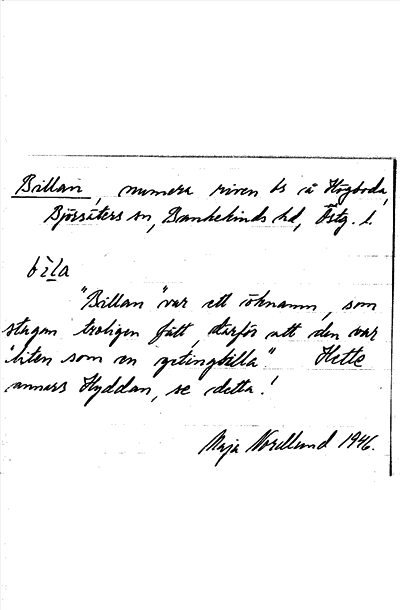 Billan, numera riven bs å Högboda,
Björsäters sn, Bankekinds hd, Östg. l.
bìla
"Billan" var ett öknamn, som
stugan troligen fått, därför att den var
"liten som en getingbilla" Hette
annars Hyddan, se detta!
Maja Norellund 1946.